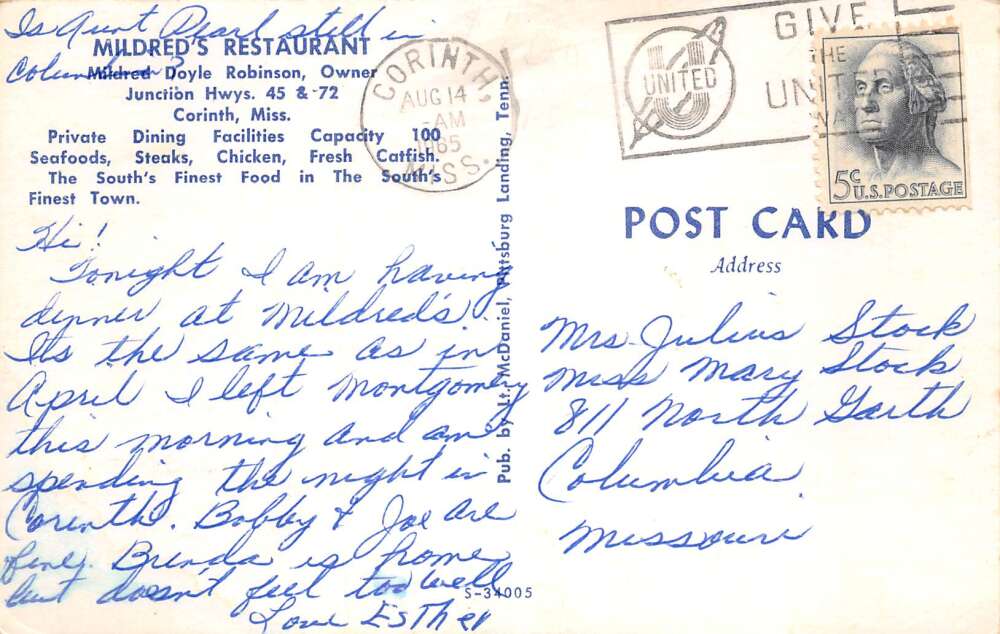 Is Aunt Pearl still in
Columbia?
MILDRED'S RESTAURANT
Mildred Doyle Robinson, Owner
Junction Hwys. 45 & 72
Corinth, Miss.
Private Dining Facilities Capacity 100
Seafoods, Steaks, Chicken, Fresh Catfish.
The South's Finest Food in The South's
Finest Town.
Hi!
Tonight I am having
dinner at Mildred's.
Its the same as in
April I left Montgomery
this morning and am
spending the night in
Corinth. Bobby & Joe are
fine. Brenda is home
but doesn't feel too well
Love Esther
CORINTH,
AUG 14
-AM
1965
MISS.
Pub. by Lt. McDaniel, Pittsburg Landing, Tenn.
S-34005
UNITED
GIVE
THE
UNIT
WA
5c
U.S. POSTAGE
POST CARD
Address
Mrs. Julius Stock
Miss Mary Stock
811 North Garth
Columbia
Missouri